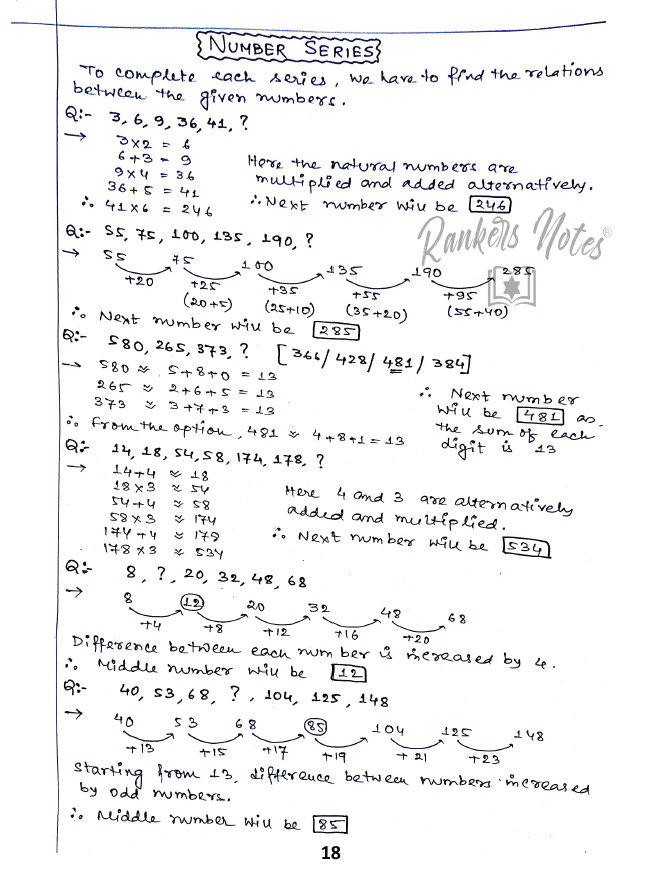 NUMBER SERIES
To complete each series, we have to find the relations
between the given numbers.
Q:- 3, 6, 9, 36, 41, ?
→ 3×2 = 6
6+3 = 9
9×4 = 36
36+5 = 41
∴ 41×6 = 246
Here the natural numbers are
multiplied and added alternatively.
∴ Next number will be 246
Rankers Notes®
Q:- 55, 75, 100, 135, 190, ?
→ 55 75 100 135 190 285
+20 +25 +35 +55 +95
(20+5) (25+10) (35+20) (55+40)
∴ Next number will be 285
Q:- 580, 265, 373, ? [366/ 428/ 481/ 384]
→ 580 ≈ 5+8+0 = 13
265 ≈ 2+6+5 = 13
373 ≈ 3+7+3 = 13
∴ from the option, 481 ≈ 4+8+1 = 13
∴ Next number
will be 481 as
the sum of each
digit is 13
Q:- 14, 18, 54, 58, 174, 178, ?
→ 14+4 ≈ 18
18×3 ≈ 54
54+4 ≈ 58
58×3 ≈ 174
174+4 ≈ 179
178×3 ≈ 534
Here 4 and 3 are alternatively
added and multiplied.
∴ Next number will be 534
Q:- 8, ?, 20, 32, 48, 68
→ 8 12 20 32 48 68
+4 +8 +12 +16 +20
Difference between each number is increased by 4.
∴ Middle number will be 12
Q:- 40, 53, 68, ?, 104, 125, 148
→ 40 53 68 85 104 125 148
+13 +15 +17 +19 +21 +23
starting from 13, difference between numbers increased
by odd numbers.
∴ Middle number will be 85
18